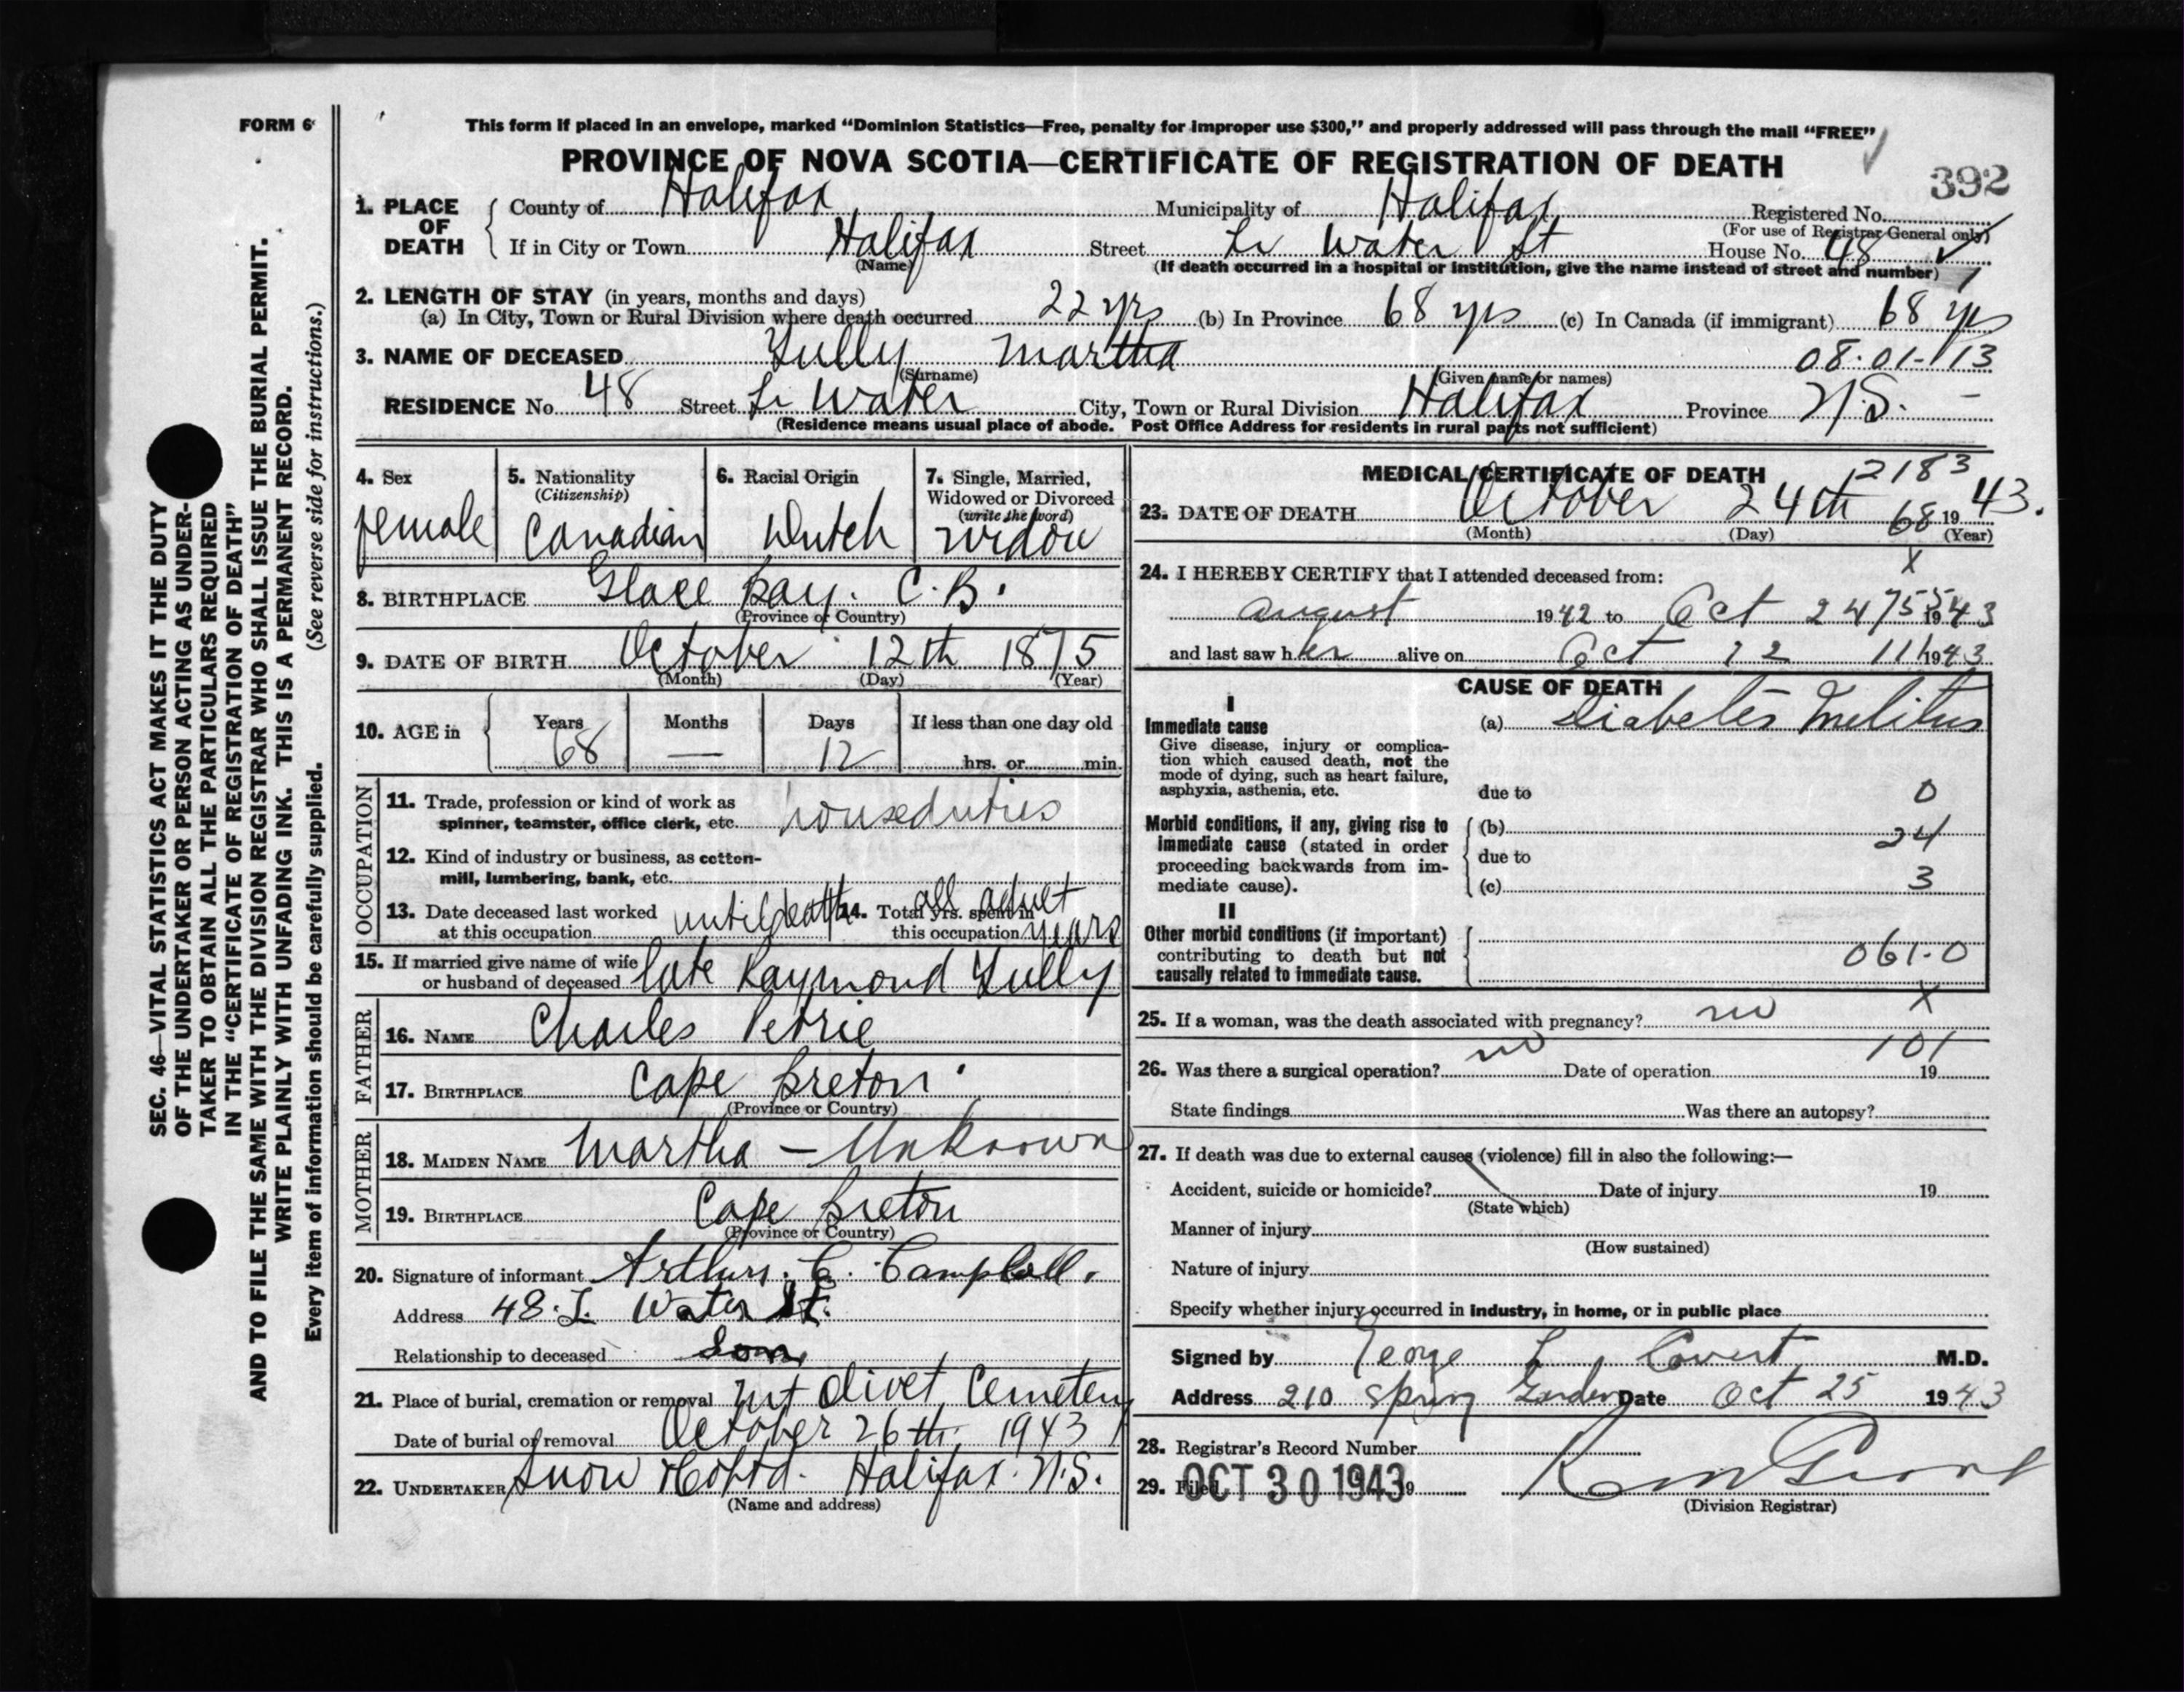 FORM 6
This form if placed in an envelope, marked “Dominion Statistics—Free, penalty for improper use $300,” and properly addressed will pass through the mail “FREE”
PROVINCE OF NOVA SCOTIA—CERTIFICATE OF REGISTRATION OF DEATH
392
1. PLACE OF DEATH
County of Halifax Municipality of Halifax Registered No.
(For use of Registrar General only)
If in City or Town Halifax Street Lr Water St House No. 48
(Name) (If death occurred in a hospital or institution, give the name instead of street and number)
2. LENGTH OF STAY (in years, months and days)
(a) In City, Town or Rural Division where death occurred 22 yrs (b) In Province 68 yrs (c) In Canada (if immigrant) 68 yrs
3. NAME OF DECEASED Martha 08·01-13
(Surname) (Given name or names)
RESIDENCE No. 48 Street Lr Water City, Town or Rural Division Halifax Province N.S. —
(Residence means usual place of abode. Post Office Address for residents in rural parts not sufficient)
4. Sex
female
5. Nationality
(Citizenship)
Canadian
6. Racial Origin
Dutch
7. Single, Married,
Widowed or Divorced
(write the word)
Widow
8. BIRTHPLACE Glace Bay. C.B.
(Province or Country)
9. DATE OF BIRTH October 12th 1875
(Month) (Day) (Year)
10. AGE in
Years Months Days If less than one day old
68 — 12 hrs. or min.
OCCUPATION
11. Trade, profession or kind of work as
spinner, teamster, office clerk, etc. houseduties
12. Kind of industry or business, as cotton-
mill, lumbering, bank, etc.
13. Date deceased last worked
at this occupation until death
14. Total yrs. spent in
this occupation all adult years
15. If married give name of wife
or husband of deceased late Raymond
FATHER
16. NAME Charles Petrie
17. BIRTHPLACE Cape Breton
(Province or Country)
MOTHER
18. MAIDEN NAME Martha — Unknown
19. BIRTHPLACE Cape Breton
(Province or Country)
20. Signature of informant Arthur. C. Campbell.
Address 48. L. Water St.
Relationship to deceased Son
21. Place of burial, cremation or removal Mt Olivet Cemetery
Date of burial or removal October 26th 1943
22. UNDERTAKER Snow & Co Ltd. Halifax. N.S.
(Name and address)
MEDICAL CERTIFICATE OF DEATH
2183
23. DATE OF DEATH October 24th 68 1943.
(Month) (Day) (Year)
X
24. I HEREBY CERTIFY that I attended deceased from:
August 1942 to Oct 24 755 1943
and last saw her alive on Oct 22 111 1943
CAUSE OF DEATH
I
Immediate cause
Give disease, injury or complica-
tion which caused death, not the
mode of dying, such as heart failure,
asphyxia, asthenia, etc.
(a) Diabetes Melitus
due to 0
Morbid conditions, if any, giving rise to
immediate cause (stated in order
proceeding backwards from im-
mediate cause).
(b) 24
due to
(c) 3
II
Other morbid conditions (if important)
contributing to death but not
causally related to immediate cause.
061-0
X
25. If a woman, was the death associated with pregnancy? no
101
26. Was there a surgical operation? no Date of operation 19
State findings Was there an autopsy?
27. If death was due to external causes (violence) fill in also the following:—
Accident, suicide or homicide? Date of injury 19
(State which)
Manner of injury
(How sustained)
Nature of injury
Specify whether injury occurred in industry, in home, or in public place
Signed by George L Covert M.D.
Address 210 Spring Garden Date Oct 25 1943
28. Registrar's Record Number
29. Filed OCT 30 1943 19
(Division Registrar)
SEC. 46—VITAL STATISTICS ACT MAKES IT THE DUTY
OF THE UNDERTAKER OR PERSON ACTING AS UNDER-
TAKER TO OBTAIN ALL THE PARTICULARS REQUIRED
IN THE “CERTIFICATE OF REGISTRATION OF DEATH”
AND TO FILE THE SAME WITH THE DIVISION REGISTRAR WHO SHALL ISSUE THE BURIAL PERMIT.
WRITE PLAINLY WITH UNFADING INK. THIS IS A PERMANENT RECORD.
Every item of information should be carefully supplied. (See reverse side for instructions.)